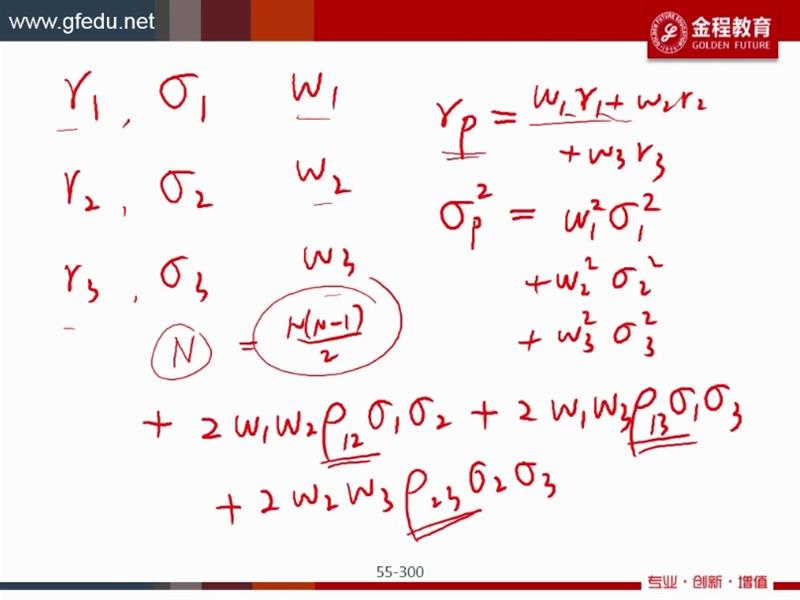 www.gfedu.net
金程教育
GOLDEN FUTURE
r₁ , σ₁ w₁
r₂ , σ₂ w₂
r₃ , σ₃ w₃
N = N(N-1)/2
rₚ = w₁r₁ + w₂r₂
+ w₃r₃
σₚ² = w₁²σ₁²
+ w₂² σ₂²
+ w₃² σ₃²
+ 2 w₁w₂ρ₁₂σ₁σ₂ + 2 w₁w₃ρ₁₃σ₁σ₃
+ 2 w₂w₃ρ₂₃σ₂σ₃
55-300
专业·创新·增值